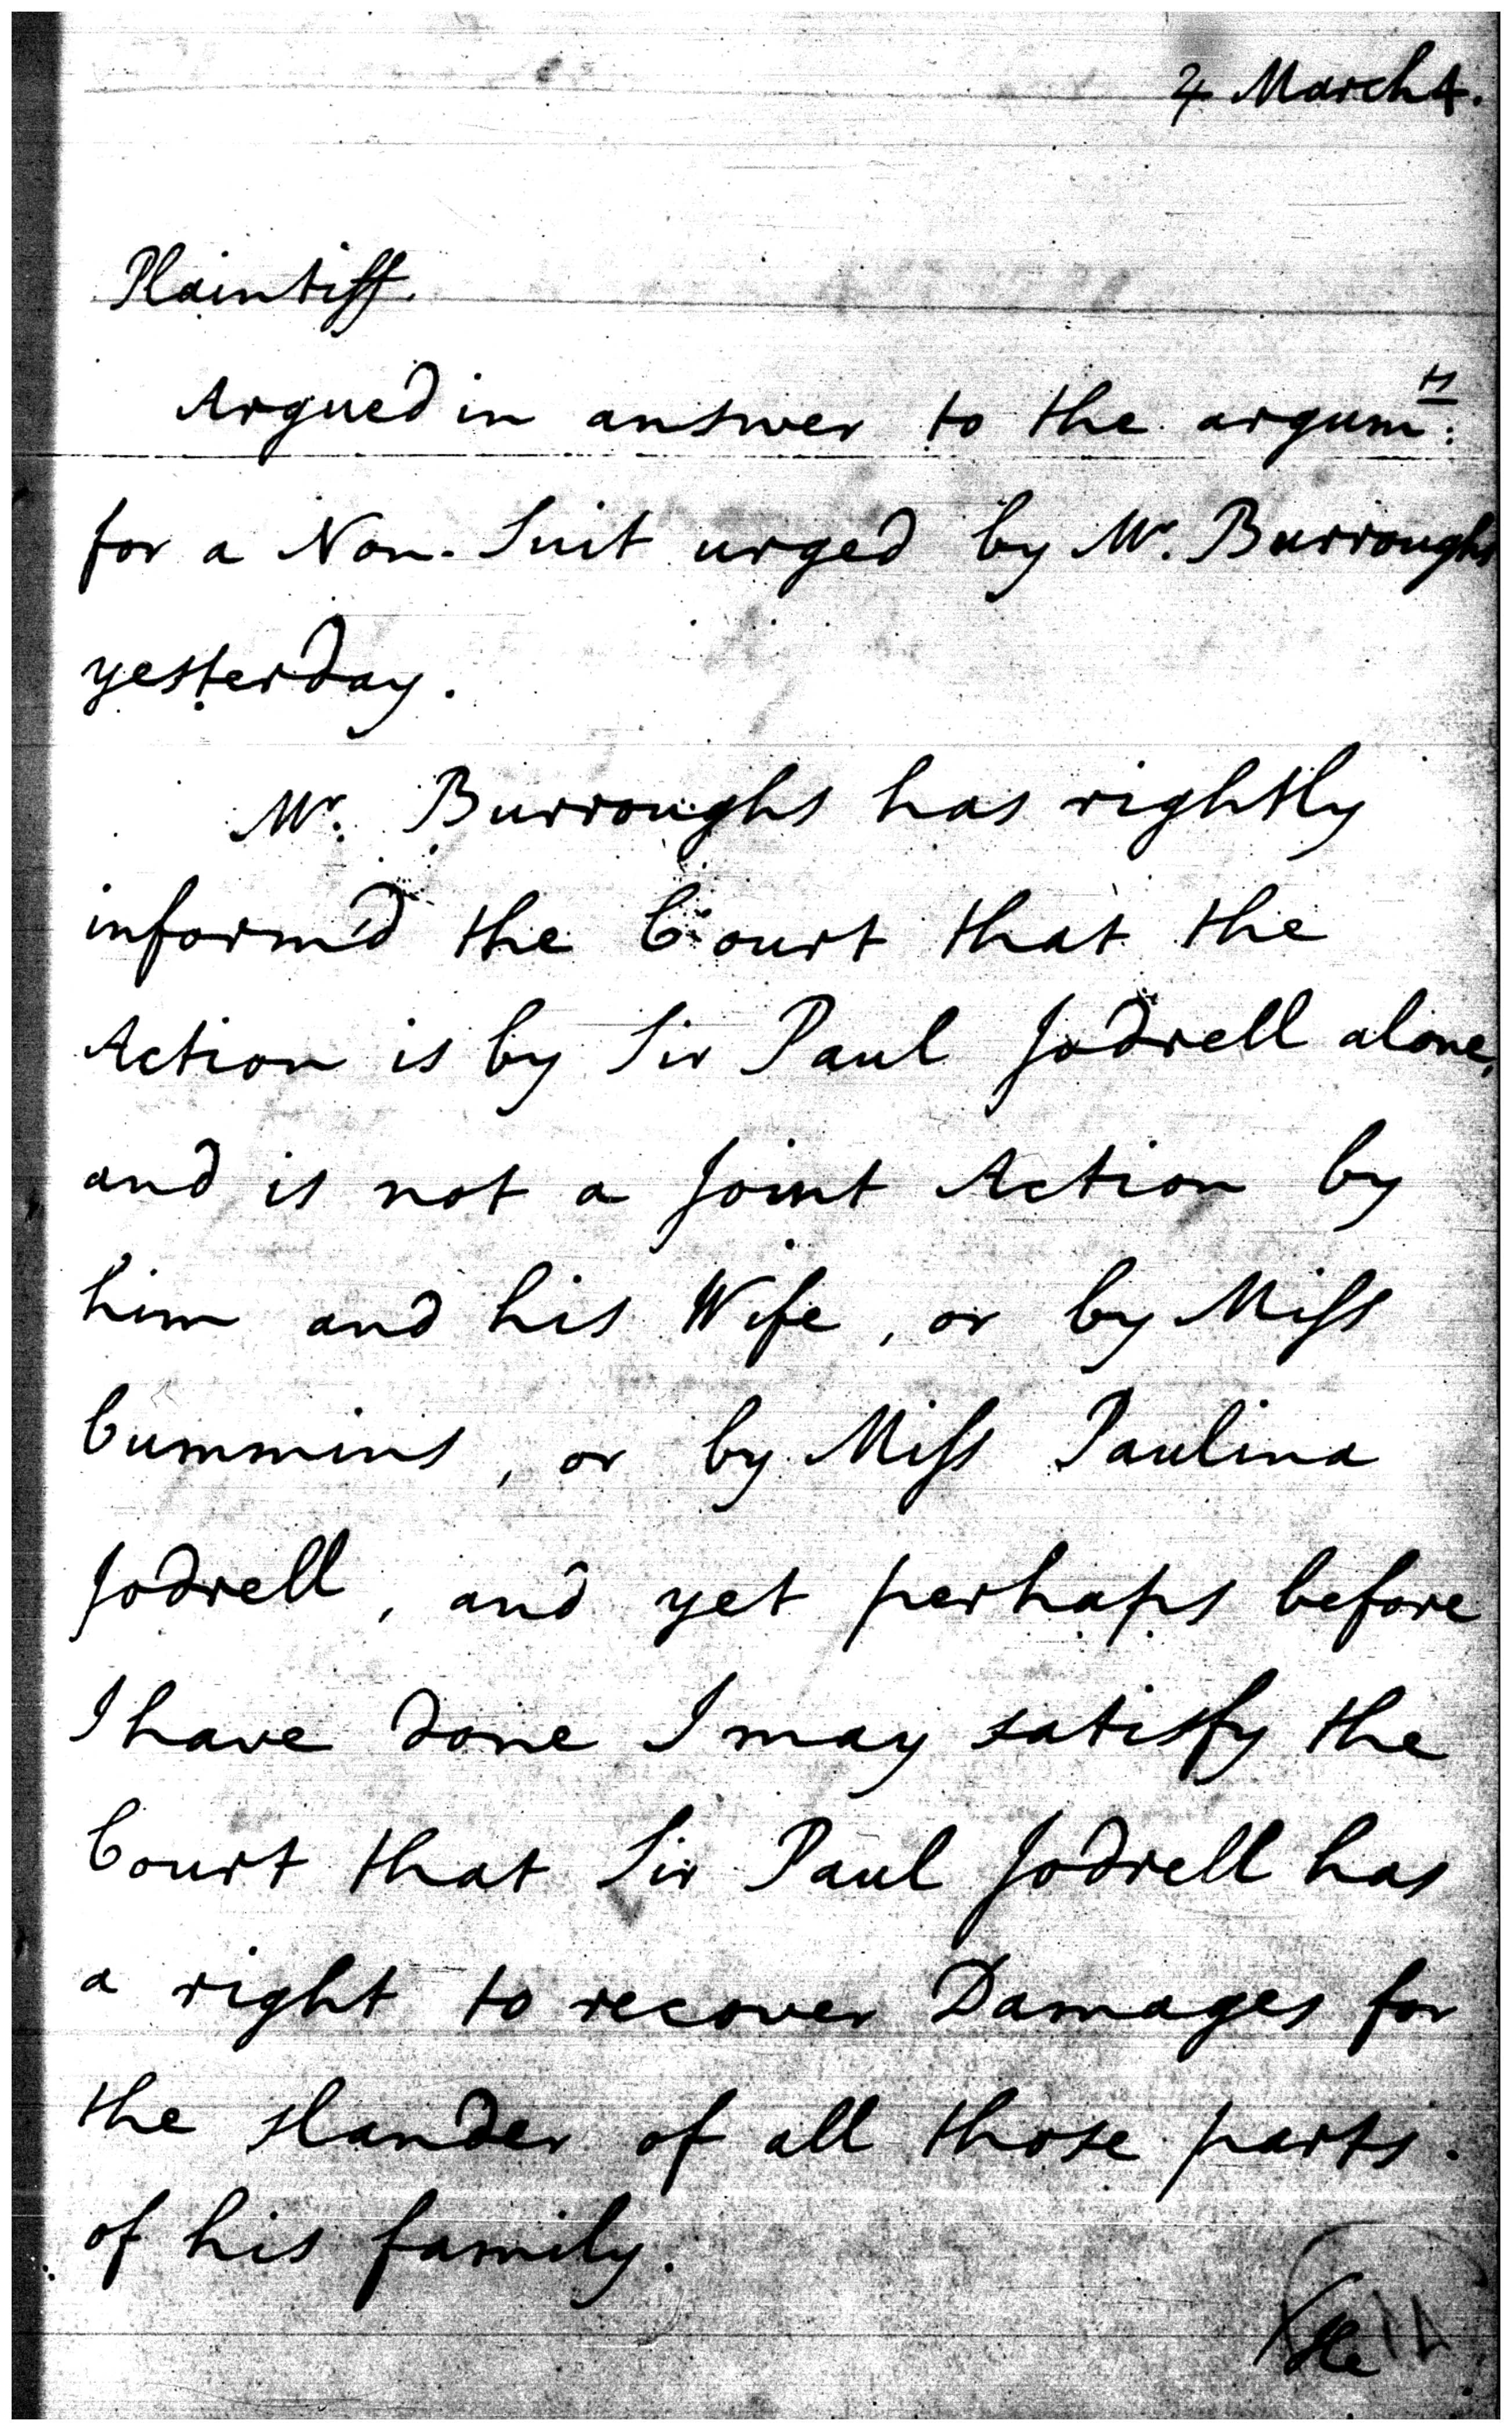 4 March 4.
Plaintiff.
Argued in answer to the argum:ᵗ
for a Non-Suit urged by Mr. Burroughs
yesterday.
Mr. Burroughs has rightly
inform'd the Court that the
Action is by Sir Paul Jodrell alone,
and is not a Joint Action by
him and his Wife, or by Miſs
Cummins, or by Miſs Paulina
Jodrell, and yet perhaps before
I have done I may satisfy the
Court that Sir Paul Jodrell has
a right to recover Damages for
the slander of all those parts
of his family.
He